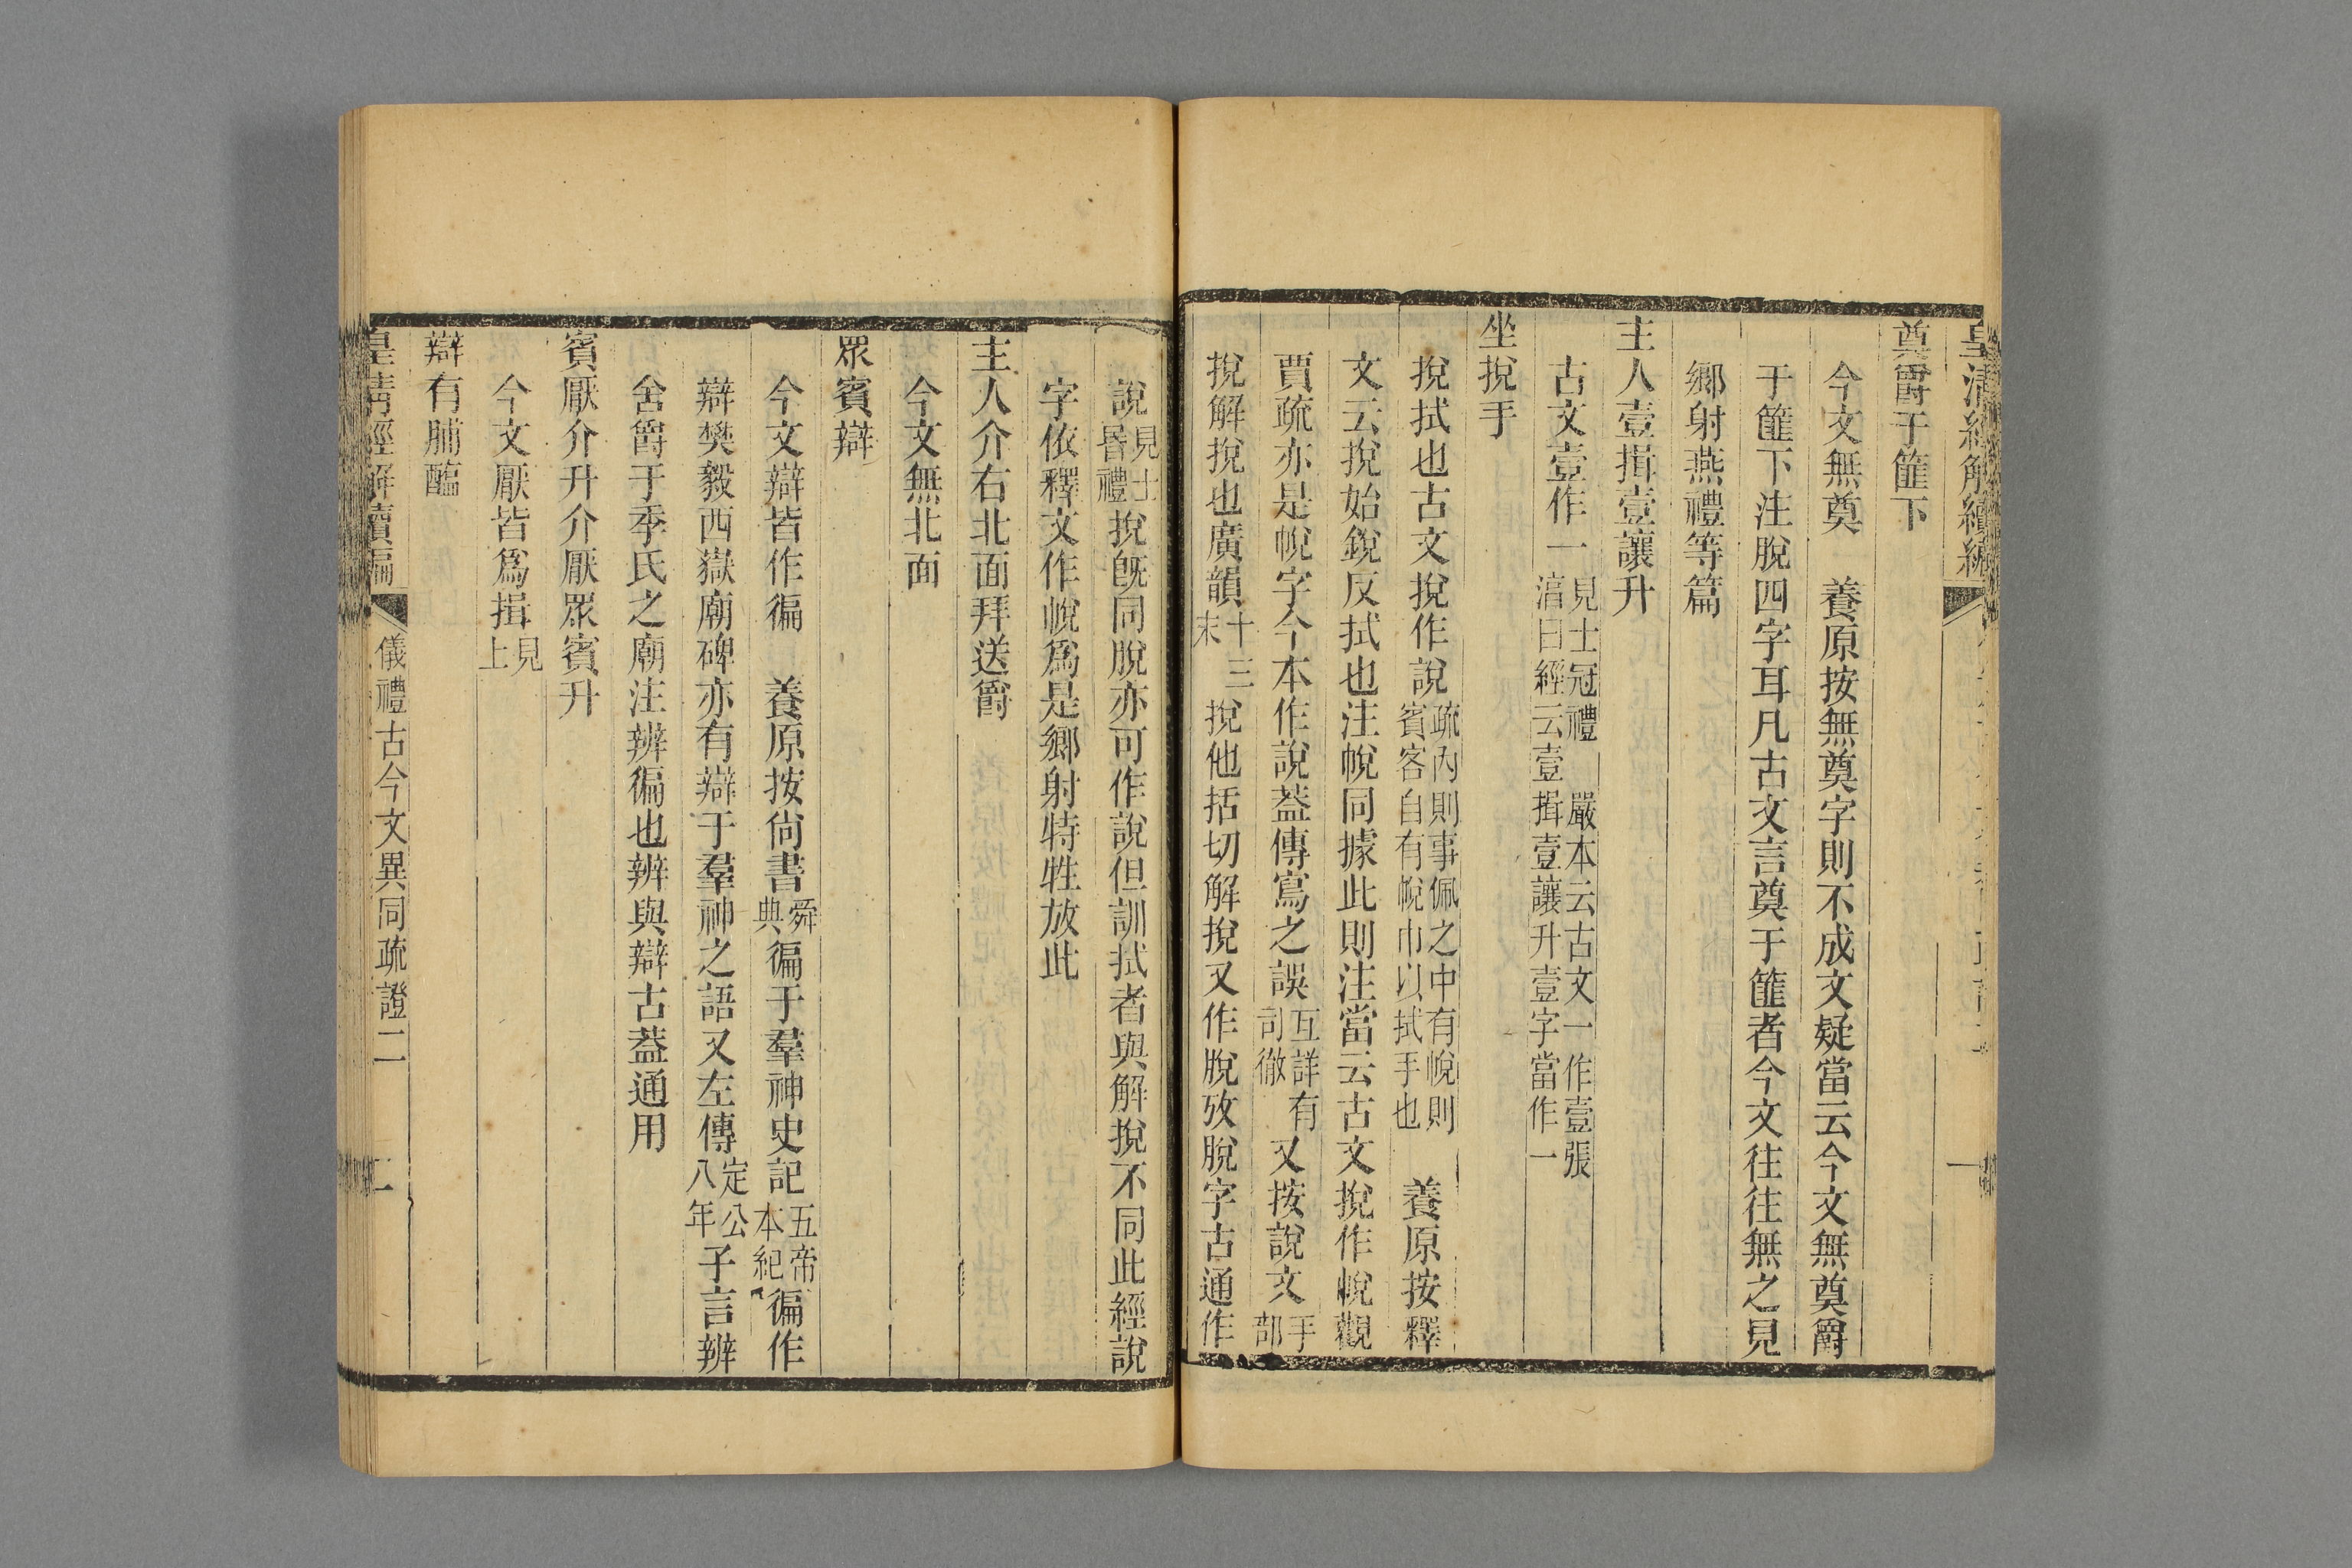 皇清經解續編
奠爵于篚下
今文無奠　養原按無奠字則不成文疑當云今文無奠爵
于篚下注脫四字耳凡古文言奠于篚者今文往往無之見
鄉射燕禮等篇
主人壹揖壹讓升
古文壹作一見士冠禮　嚴本云古文一作壹張淳曰經云壹揖壹讓升壹字當作一
坐挩手
挩拭也古文挩作說疏內則事佩之中有帨則賓客自有帨巾以拭手也　養原按釋
文云挩始銳反拭也注帨同據此則注當云古文挩作帨觀
賈疏亦是帨字今本作說蓋傳寫之誤互詳有司徹又按說文手部
挩解挩也廣韻十三末挩他括切解挩又作脫攷脫字古通作
說見士昏禮挩旣同脫亦可作說但訓拭者與解挩不同此經說
字依釋文作帨爲是鄉射特牲放此
主人介右北面拜送爵
今文無北面
眾賓辯
今文辯皆作徧　養原按尙書舜典徧于羣神史記五帝本紀徧作
辯樊毅西嶽廟碑亦有辯于羣神之語又左傳定公八年子言辨
舍爵于季氏之廟注辨徧也辨與辯古蓋通用
賓厭介升介厭眾賓升
今文厭皆爲揖見上
辯有脯醢
皇清經解續編　儀禮古今文異同疏證二　二